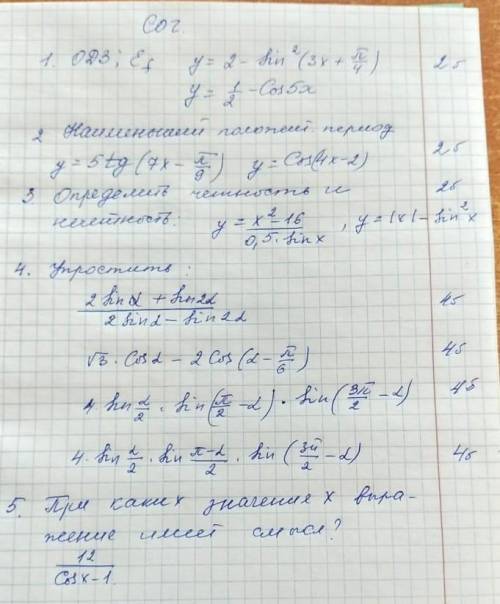 СОЧ.
1. ОДЗ; Ef y = 2 - sin²(3x + π/4) 2б
y = 1/2 - Cos5x
2 Наименьший положит. период
y = 5tg(7x - π/9) y = Cos(4x-2) 2б
3 Определить четность и 2б
нечетность: y = x²-16 / 0,5·sinx , y = |x| - sin²x
4. Упростить:
2 sinα + sin2α / 2 sinα - sin2α 4б
√3 · Cosα - 2Cos(α - π/6) 4б
4 sin α/2 · sin(π/2 - α) · sin(3π/2 - α) 4б
4·sin α/2 · sin π-α/2 · sin(3π/2 - α) 4б
5. При каких значение х выра-
жение имеет смысл?
12 / Cosx-1